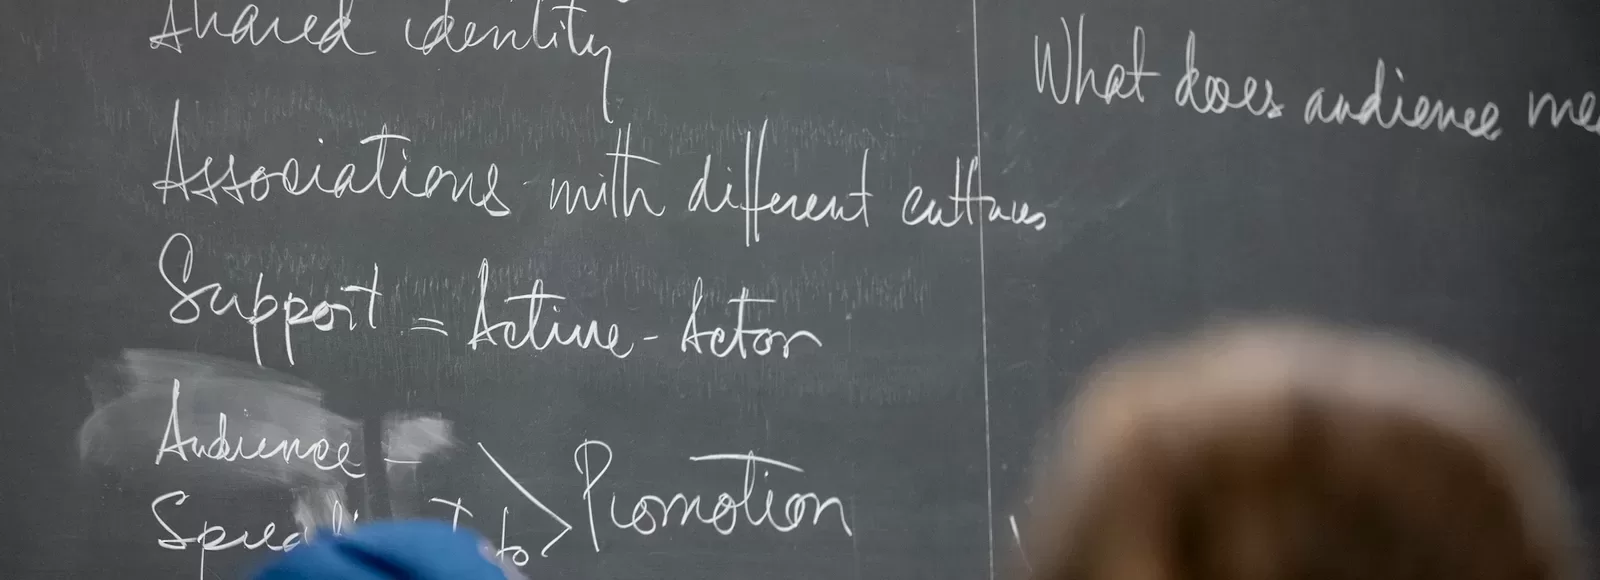 Shared identity
Associations with different cultures
Support = Active - Actor
Audience -
Promotion
to
What does audience